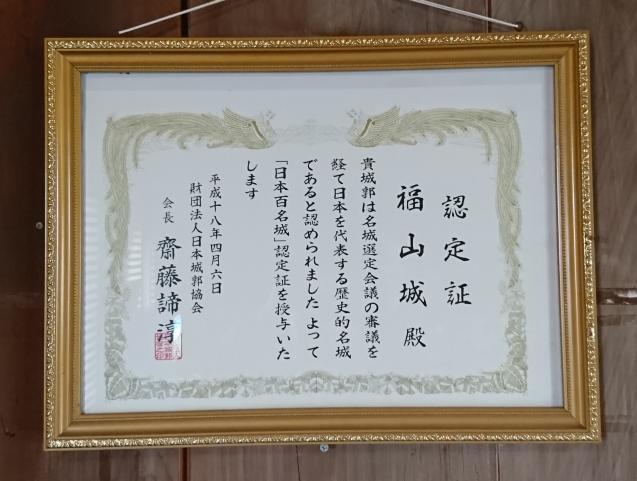 認定証
福山城殿
貴城郭は名城選定会議の審議を
経て日本を代表する歴史的名城
であると認められました よって
「日本百名城」認定証を授与いた
します
平成十八年四月六日
財団法人日本城郭協会
会長 齋藤諦淳